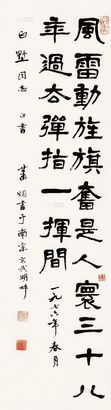 風雷動旌旗奮是人寰三十八
年過去彈指一揮間
一九七六年春月
同志正書
蕭嫻書于南京玄武湖畔